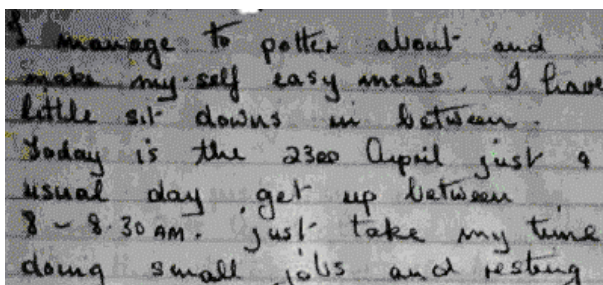 I manage to potter about and
make my-self easy meals. I have
little sit downs in between.
Today is the 23rd April just a
usual day get up between
8 - 8.30 AM. just take my time
doing small jobs and resting